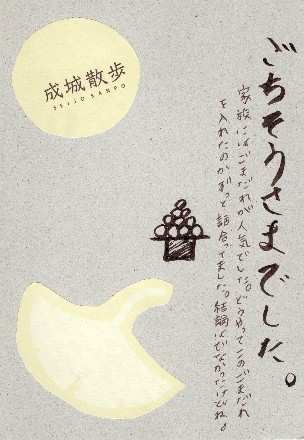 成城散歩
SEIJO SANPO
ごちそうさまでした。
家族にはごまだれが人気でした。どうやってこのごまだれ
を入れたのかずっと話合ってました。結論はでなかったけどね。